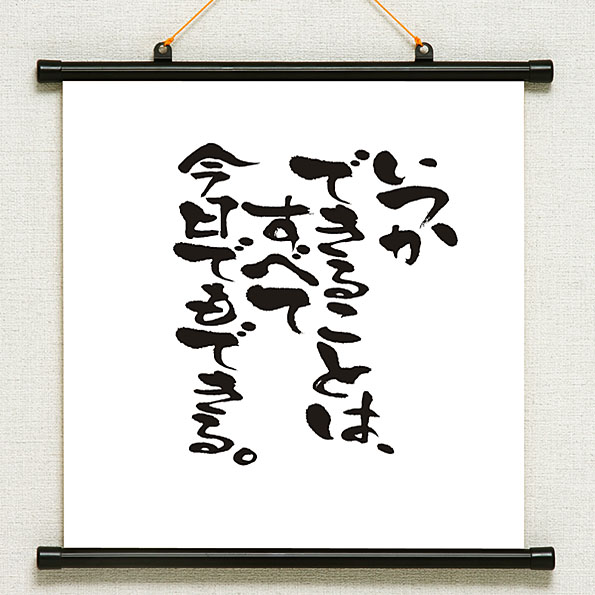 いつか
できることは、
すべて
今日でもできる。